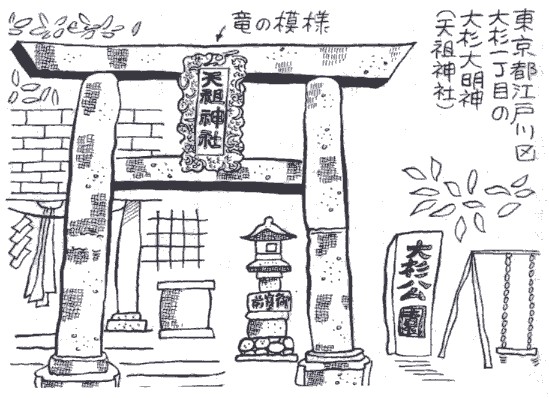 東京都江戸川区
大杉一丁目の
大杉大明神
（天祖神社）
竜の模様
天祖神社
大杉公園